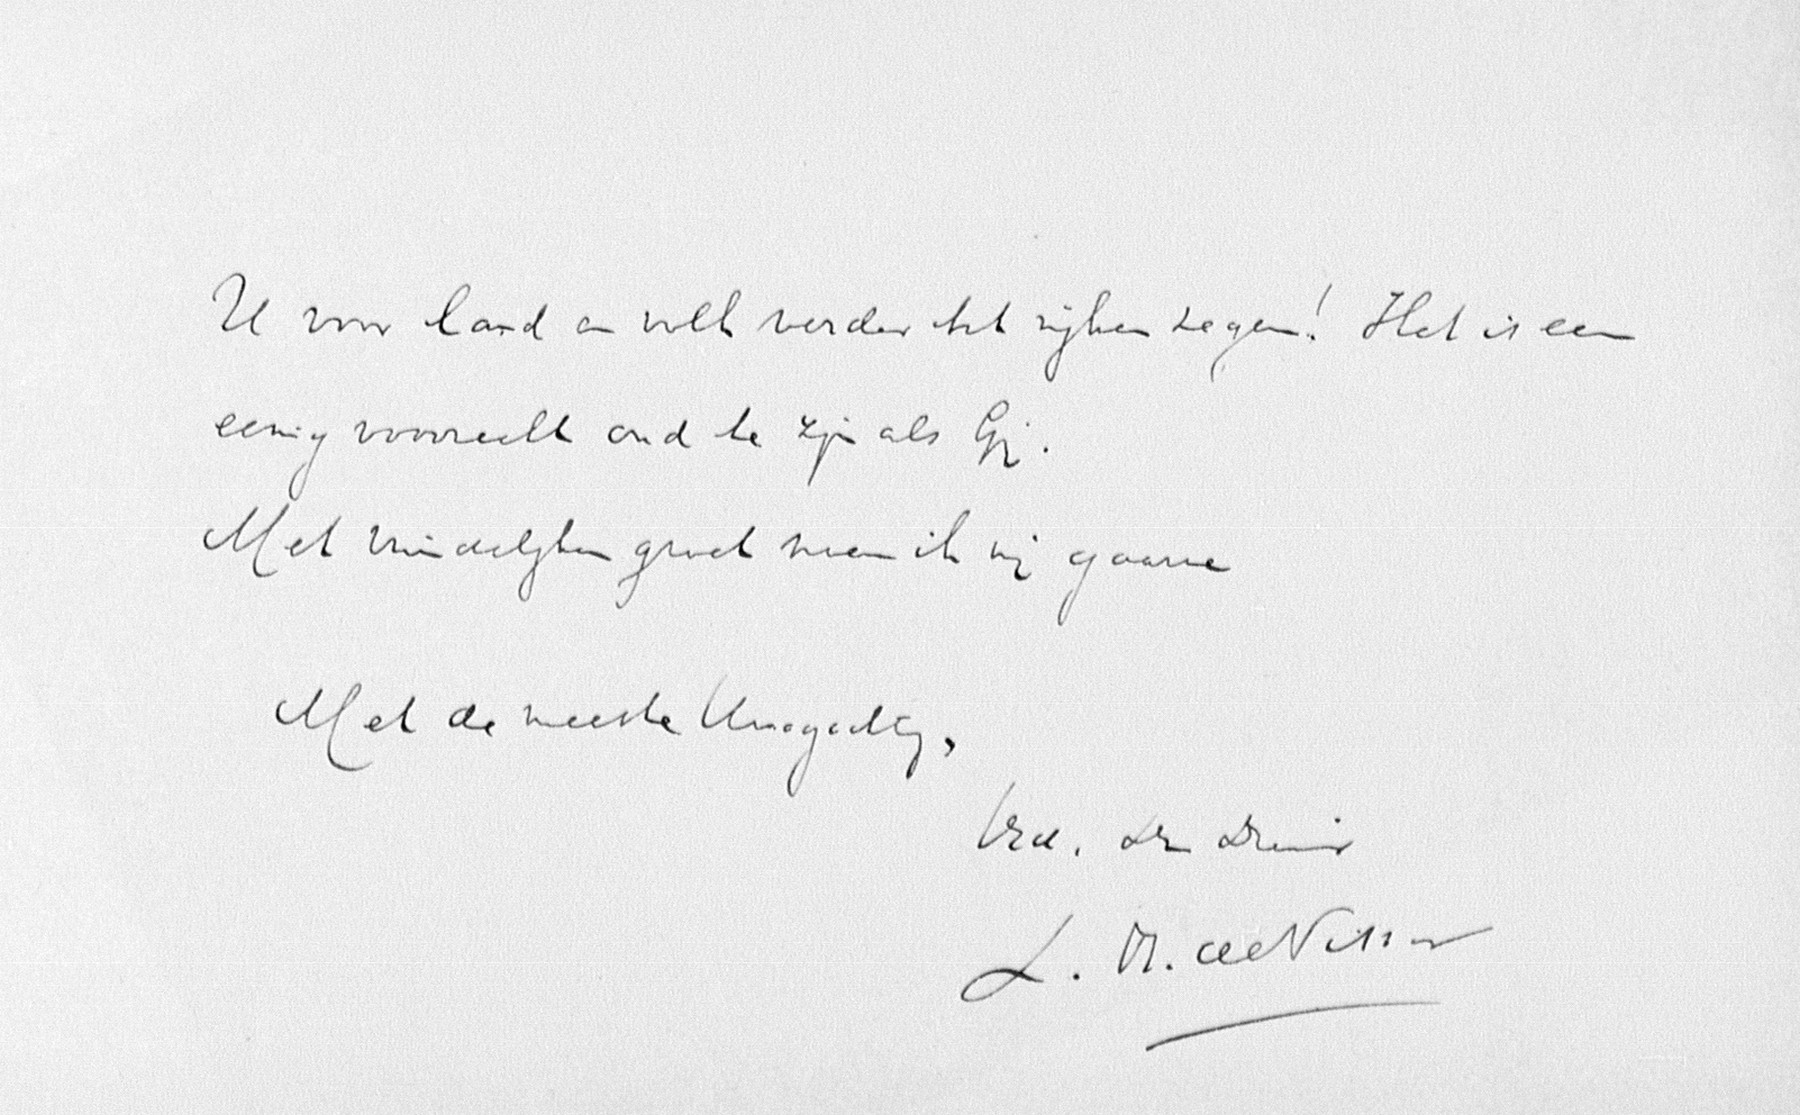 U voor land en volk verder tot rijken zegen! Het is een
eenig voorrecht oud te zijn als Gij.
Met vriendelijken groet noem ik mij gaarne
Met de meeste Hoogachting,
Uw. Dr. Dienr
L. M. de Visser